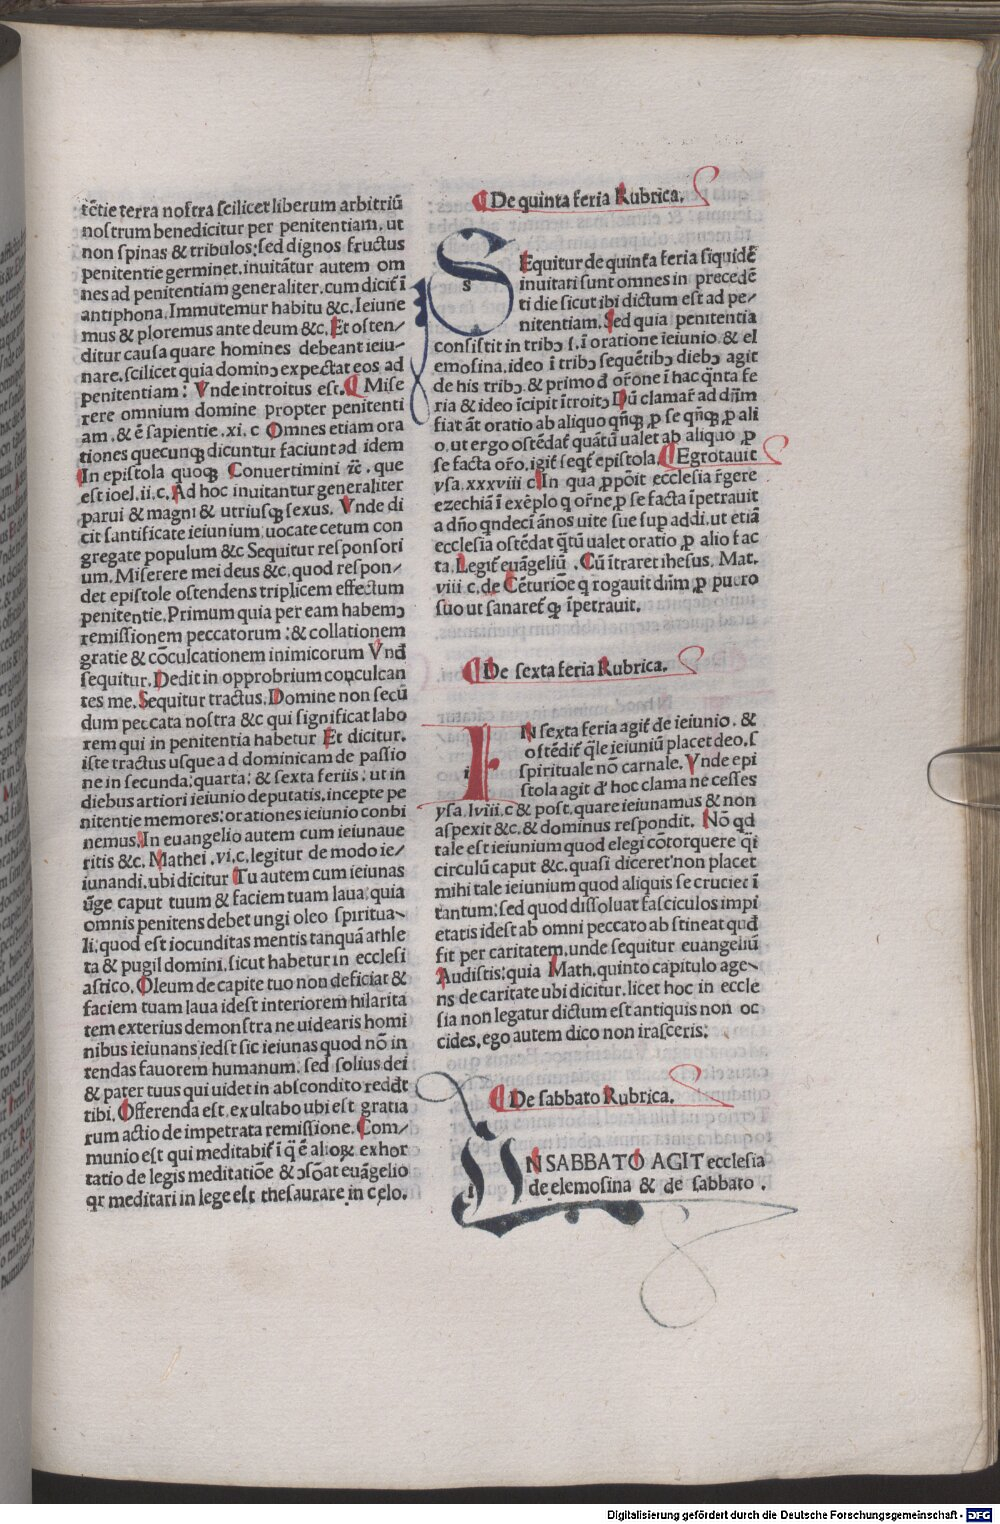 tẽtie terra noſtra ſcilicet liberum arbitriũ
noſtrum benedicitur per penitentiam, ut
non ſpinas & tribulos: ſed dignos fructus
penitentie germinet, inuitãtur autem om
nes ad penitentiam generaliter, cum dicit̃ ĩ
antiphona, Immutemur habitu &c. Ieiune
mus & ploremus ante deum &c, Et oſten/
ditur cauſa quare homines debeant ieiu/
nare, ſcilicet quia dominꝰ expectat eos ad
penitentiam: Vnde introitus eſt. Miſe
rere omnium domine propter penitenti
am, & ẽ ſapientie .xi. c Omnes etiam ora
tiones quecunqꝫ dicuntur faciunt ad idem
In epiſtola quoqꝫ Conuertimini ⁊c. que
eſt ioel. ii. c. Ad hoc inuitantur generaliter
parui & magni & utriuſqꝫ ſexus. Vnde di
cit ſantificate ieiunium, uocate cetum con
gregate populum &c Sequitur reſponſori
um. Miſerere mei deus &c, quod reſpon/
det epiſtole oſtendens triplicem effectum
penitentie. Primum quia per eam habemꝰ
remiſſionem peccatorum: & collationem
gratie & cõculcationem inimicorum Vnđ
ſequitur. Dedit in opprobrium conculcan
tes me. Sequitur tractus. Domine non ſecũ
dum peccata noſtra &c qui ſignificat labo
rem qui in penitentia habetur Et dicitur.
iſte tractus uſque ad dominicam de paſſio
ne in ſecunda: quarta: & ſexta feriis: ut in
diebus artiori ieiunio deputatis, incepte pe
nitentie memores: orationes ieiunio conbi
nemus. In euangelio autem cum ieiunaue
ritis &c. Mathei .vi. c. legitur de modo ie/
iunandi. ubi dicitur Tu autem cum ieiunas
ũge caput tuum & faciem tuam laua: quia
omnis penitens debet ungi oleo ſpiritua/
li: quod eſt iocunditas mentis tanquã athle
ta & pugil domini, ſicut habetur in eccleſi
aſtico. Oleum de capite tuo non deficiat &
faciem tuam laua ideſt interiorem hilarita
tem exterius demonſtra ne uidearis homi
nibus ieiunans iedſt ſic ieiunas quod nõ in
tendas fauorem humanum: ſed ſolius dei
& pater tuus qui uidet in abſcondito reddt
tibi. Offerenda eſt, exultabo ubi eſt gratia
rum actio de impetrata remiſſione. Com/
munio eſt qui meditabit̃ ĩ q̃ ẽ alioꝝ exhor
tatio de legis meditatiõe & ꝯſõat euãgelio
qr meditari in lege eſt theſaurare in celo.
De quinta feria Rubrica.
S Equitur de quinta feria ſiquidẽ
inuitati ſunt omnes in precedẽ
ti die ſicut ibi dictum eſt ad pe/
nitentiam. Sed quia penitentia
conſiſtit in tribꝰ ſ. ĩ oratione ieiunio & el
emoſina, ideo ĩ tribꝰ ſequẽtibꝰ diebꝰ agit
de his tribꝰ & primo đ or̃one ĩ hac q̃nta fe
ria & ideo ĩcipit ĩtroitꝰ Dũ clamar̃ ad dñm
fiat ãt oratio ab aliquo qñqꝫ ꝓ ſe qñqꝫ ꝓ ali
o, ut ergo oſtẽdat̃ quãtũ ualet ab aliquo ꝓ
ſe facta or̃o, igit̃ ſeqt̃ epiſtola. Egrotauit
yſa. xxxviii c In qua ꝓpõit eccleſia r̃gere
ezechiã ĩ exẽplo q or̃ne ꝓ ſe facta ĩpetrauit
a dño qndeci ãnos uite ſue ſup addi, ut etiã
eccleſia oſtẽdat q̃tũ ualet oratio ꝓ alio fac
ta. Legit̃ euãgeliũ. Cũ ĩtraret iheſus. Mat.
viii c. de Cẽturiõe q rogauit dñm ꝓ puero
ſuo ut ſanaret̃ qꝫ ĩpetrauit.
De ſexta feria Rubrica.
I N ſexta feria agit̃ de ieiunio, &
oſtẽdit̃ q̃le ieiuniũ placet deo, ſ
ſpirituale nõ carnale. Vnde epi
ſtola agit đ hoc clama ne ceſſes
yſa. lviii. c & poſt, quare ieiunamus & non
aſpexit &c. & dominus reſpondit. Nõ qđ
tale eſt ieiunium quod elegi cõtorquere q̃ſi
circulũ caput &c. quaſi diceret non placet
mihi tale ieiunium quod aliquis ſe cruciet ĩ
tantum: ſed quod diſſoluat faſciculos impi
etatis ideſt ab omni peccato abſtineat quđ
fit per caritatem, unde ſequitur euangeliũ
Audiſtis: quia Math. quinto capitulo age/
ns de caritate ubi dicitur, licet hoc in eccle
ſia non legatur dictum eſt antiquis non oc
cides, ego autem dico non iraſceris:
De ſabbato Rubrica.
I N SABBATO AGIT eccleſia
de elemoſina & de ſabbato .
Digitalisierung gefördert durch die Deutsche Forschungsgemeinschaft - DFG